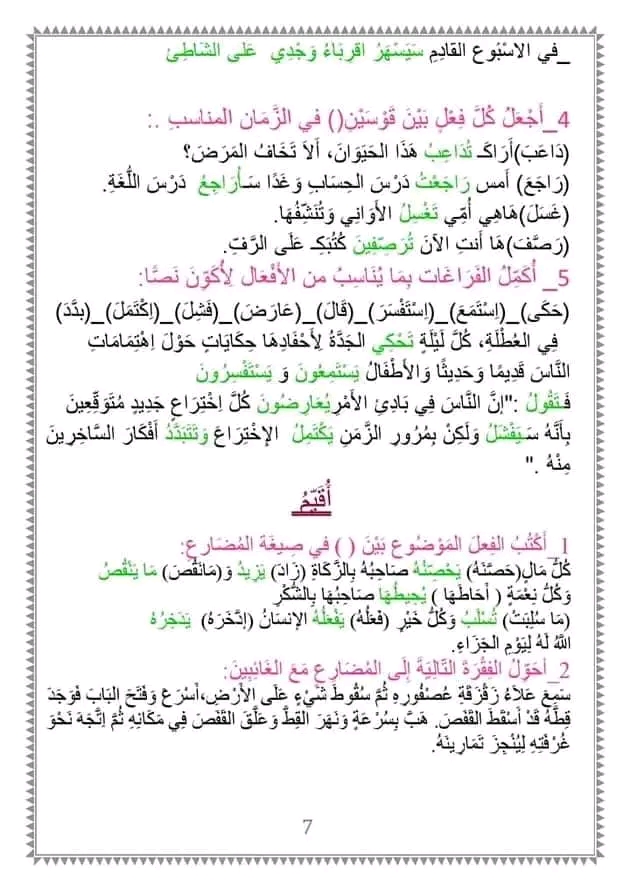 _في الاسْبُوعِ القَادِمِ سَيَسْهَرُ اقرِبَاءُ وَجْدِي عَلى الشَاطِئِ
4_أَجْعَلُ كُلَّ فِعْلٍ بَيْنَ قَوْسَيْنِ() في الزَّمَان المناسبِ .:
(دَاعَبَ)أَرَاكَـ تُدَاعِبُ هَذَا الحَيَوَانَ، أَلاَ تَخَافُ المَرَضَ؟
(رَاجَعَ) أَمس رَاجَعْتُ دَرْسَ الحِسَابِ وَغَدًا سَـأُرَاجِعُ دَرْسَ اللُّغَةِ.
(غَسَلَ)هَاهِي أُمِّي تَغْسِلُ الأَوَانِي وَتُنَشِّفُهَا.
(رَصَّفَ)هَا أَنتِ الآنَ تُرَصِّفِينَ كُتُبَكِـ عَلَى الرَّفِّ.
5_ أُكَمِّلُ الفَرَاغَات بِمَا يُنَاسِبُ من الأَفْعَال لِأُكَوِّنَ نَصًّا:
(حَكَى)_(اِسْتَمَعَ)_(اِسْتَفْسَرَ)_(قَالَ)_(عَارَضَ)_(فَشِلَ)_(اِكْتَمَلَ)_(بدَّدَ)
فِي العُطْلَةِ، كُلَّ لَيْلَةٍ تَحْكِي الجَدَّةُ لِأَحْفَادِهَا حِكَايَاتٍ حَوْلَ اِهْتِمَامَاتِ
النَّاسَ قَدِيمًا وَحَدِيثًا وَالأَطْفَالُ يَسْتَمِعُونَ وَ يَسْتَفْسِرُونَ
فَـتَقُولُ :"إِنَّ النَّاسَ فِي بَادِئِ الأَمْرِ يُعَارِضُونَ كُلَّ اِخْتِرَاعٍ جَدِيدٍ مُتَوَقِّعِينَ
بِأَنَّهُ سَـيَفْشَلُ وَلَكِنْ بِمُرُورِ الزَّمَنِ يَكْتَمِلُ الإخْتِرَاعَ وَتَتَبَدَّدُ أَفْكَارَ السَّاخِرِينَ
مِنْهُ ."
أُقَيِّمُ
1_ أَكْتُبُ الفِعلَ المَوْضُوع بَيْنَ ( ) في صِيغَة المُضَارِع:
كُلُّ مَالٍ(حَصَّنَهُ) يَحْصِنُهُ صَاحِبُهُ بِالزَّكَاةِ (زَادَ) يَزِيدُ وَ(مَانَقُصَ) مَا يَنْقُصُ
وَكُلُّ نِعْمَةٍ ( أَحَاطَهَا ) يُحِيطُهَا صَاحِبُهَا بِالشُّكْرِ
(مَا سُلِبَتْ) تُسْلَبُ وَكُلُّ خَيْرٍ (فعَلُهُ) يَفْعَلُهُ الإنسَانُ (اِتَّخَرَهُ) يَدَخِرُهُ
اللهُ لَهُ لِيَوْمِ الجَزَاءِ.
2_أحَوِّل الفِقْرَةَ التَّالِيَةَ إِلَى المُضَارِع مَعَ الغَائِبِينَ:
سَمِعَ عَلاَءُ زَقْزَقِةِ عُصْفُورِهِ ثُمَّ سُقُوطَ شَيْءٍ عَلَى الأَرْضِ،أَسْرَعَ وَفَتَحَ البَابَ فَوَجَدَ
قِطَّهُ قَدْ أَسْقَطَ القَفَصَ. هَبَّ بِسُرْعَةٍ وَنَهَرَ القِطَّ وَعَلَّقَ القَفَصَ فِي مَكَانِهِ ثُمَّ اِتَّجَهَ نَحْوَ
غُرْفَتِهِ لِيُنْجِزَ تَمَارِينَهُ.
7